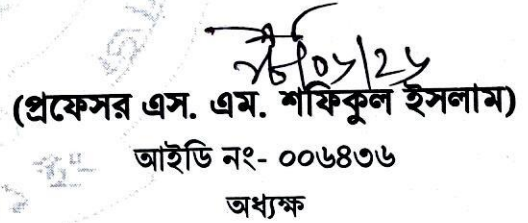 (প্রফেসর এস. এম. শফিকুল ইসলাম)
আইডি নং- ০০৬৪৩৬
অধ্যক্ষ